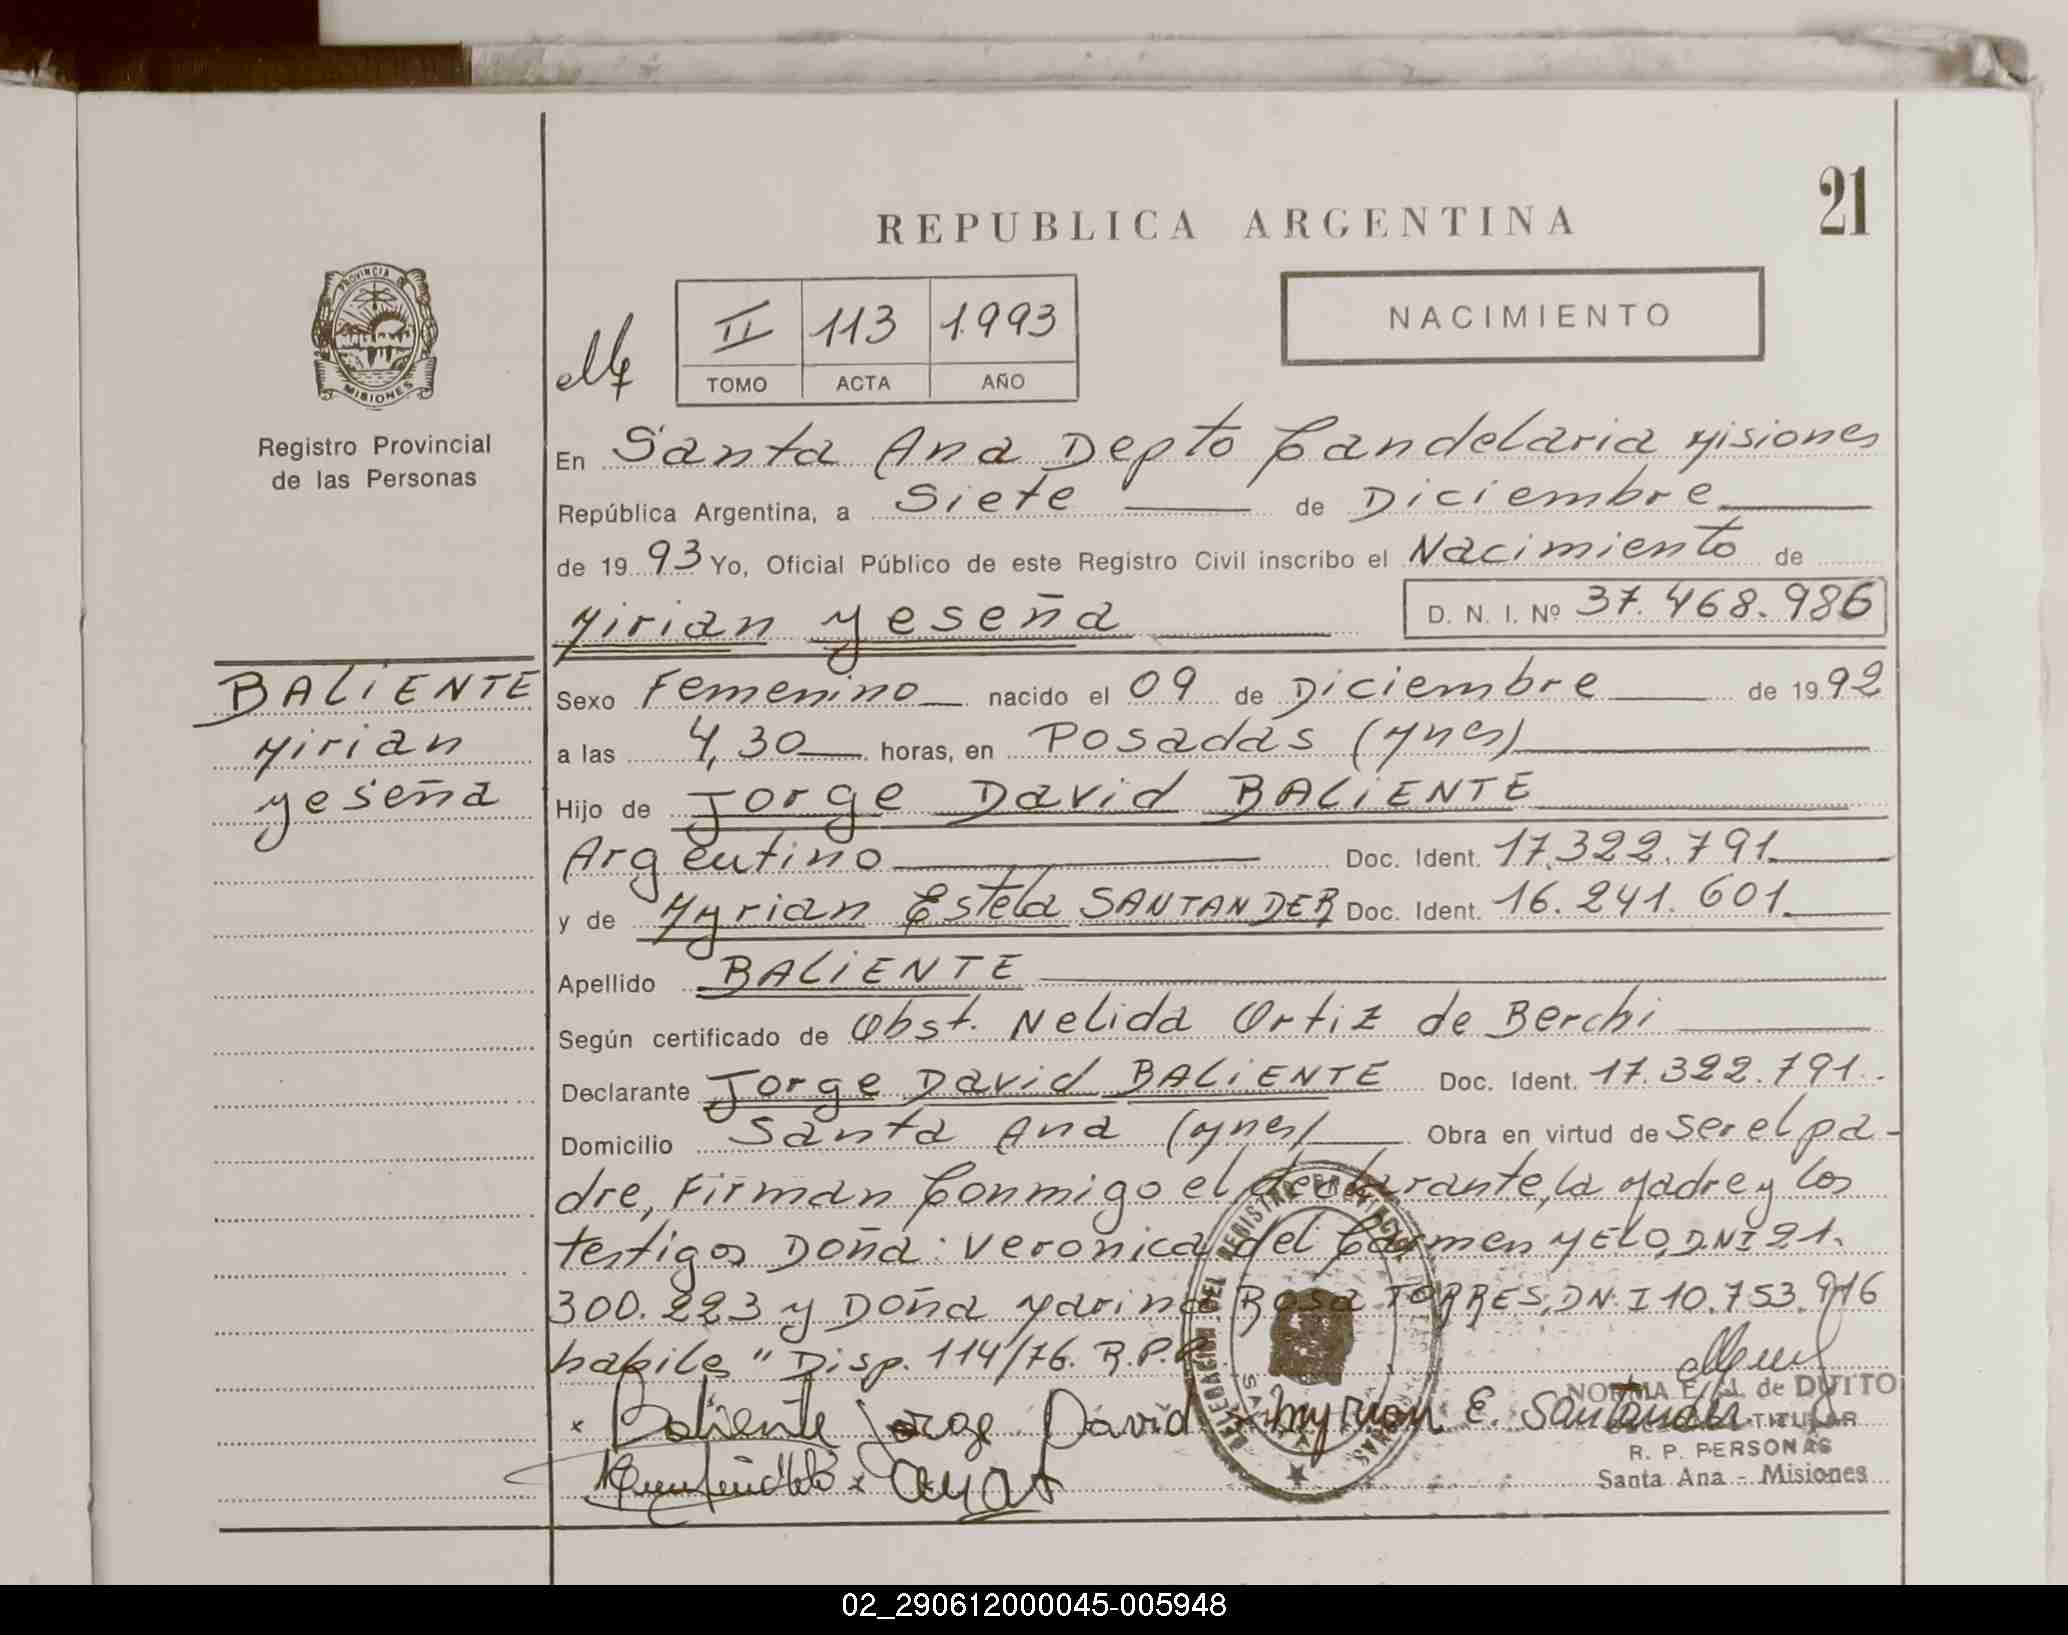 21
REPUBLICA ARGENTINA
NACIMIENTO
II 113 1993
TOMO ACTA AÑO
PROVINCIA DE
MISIONES
Registro Provincial
de las Personas
En Santa Ana Depto Candelaria Misiones
República Argentina, a Siete de Diciembre
de 1993 Yo, Oficial Público de este Registro Civil inscribo el Nacimiento de
Mirian Yeseña D. N. I. Nº 37.468.986
BALIENTE
Mirian
Yeseña
Sexo Femenino nacido el 09 de Diciembre de 1992
a las 4,30 horas, en Posadas (Mnes)
Hijo de Jorge David BALIENTE
Argentino Doc. Ident. 17.322.791
y de Myrian Estela SANTANDER Doc. Ident. 16.241.601
Apellido BALIENTE
Según certificado de Obst. Nelida Ortiz de Berchi
Declarante Jorge David BALIENTE Doc. Ident. 17.322.791.
Domicilio Santa Ana (Mnes) Obra en virtud de Ser el pa-
dre, Firman Conmigo el declarante, la Madre y los
testigos Doña: Veronica del Carmen YELO, D.N.I 21.
300.223 y Doña Marina Rosa TORRES, D.N.I 10.753.916
habiles" Disp. 114/76. R.P.P.
DELEGACION DEL REGISTRO
x Baliente Jorge David x Myrian E. Santander
NORMA E. de DUTTO
TITULAR
R. P. PERSONAS
Santa Ana - Misiones
02_290612000045-005948